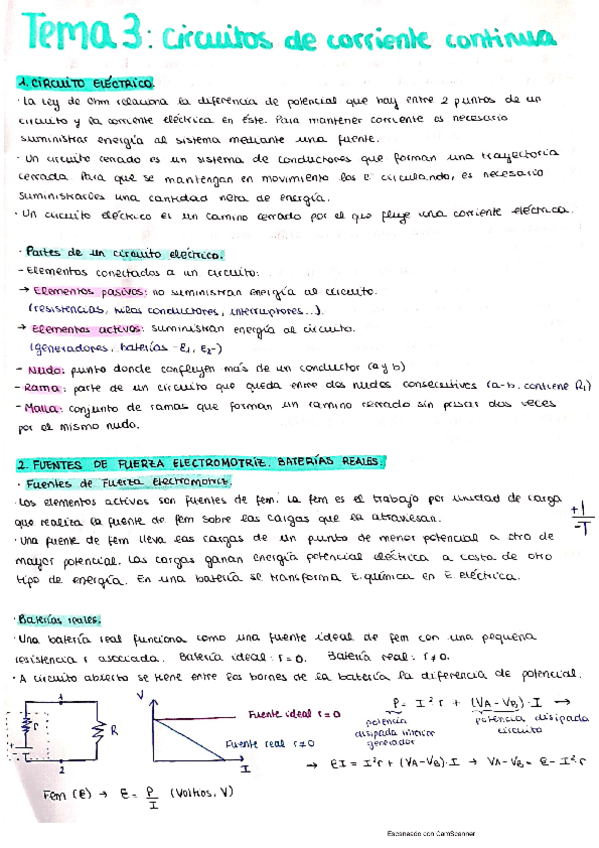 Tema 3: Circuitos de corriente continua
1. CIRCUITO ELÉCTRICO.
· La ley de Ohm relaciona la diferencia de potencial que hay entre 2 puntos de un
circuito y la corriente eléctrica en éste. Para mantener corriente es necesario
suministrar energía al sistema mediante una fuente.
· Un circuito cerrado es un sistema de conductores que forman una trayectoria
cerrada. Para que se mantengan en movimiento los e⁻ circulando, es necesario
suministrarles una cantidad neta de energía.
· Un circuito eléctrico es un camino cerrado por el que fluye una corriente eléctrica.
· Partes de un circuito eléctrico.
- Elementos conectados a un circuito:
→ Elementos pasivos: no suministran energía al circuito.
(resistencias, hilos conductores, interruptores...).
→ Elementos activos: suministran energía al circuito.
(generadores, baterías - ε₁, ε₂-)
- Nudo: punto donde confluyen más de un conductor (a y b)
- Rama: parte de un circuito que queda entre dos nudos consecutivos (a-b. contiene R₁)
- Malla: conjunto de ramas que forman un camino cerrado sin pasar dos veces
por el mismo nudo.
2. FUENTES DE FUERZA ELECTROMOTRIZ. BATERÍAS REALES.
· Fuentes de Fuerza electromotriz.
· Los elementos activos son fuentes de fem. La fem es el trabajo por unidad de carga
que realiza la fuente de fem sobre las cargas que la atraviesan.
+
-
· Una fuente de fem lleva las cargas de un punto de menor potencial a otro de
mayor potencial. Las cargas ganan energía potencial eléctrica a costa de otro
tipo de energía. En una batería se transforma E. química en E. eléctrica.
· Baterías reales.
· Una batería real funciona como una fuente ideal de fem con una pequeña
resistencia r asociada. Batería ideal: r = 0. Batería real: r ≠ 0.
· A circuito abierto se tiene entre los bornes de la batería la diferencia de potencial.
1
r
R
2
V
Fuente ideal r = 0
Fuente real r ≠ 0
I
P = I² r + (VA - VB) · I →
potencia
disipada interior
generador
potencia disipada
circuito
→ EI = I²r + (VA - VB) · I → VA - VB = E - I²r
Fem (E) → E = P/I (Voltios, V)
Escaneado con CamScanner